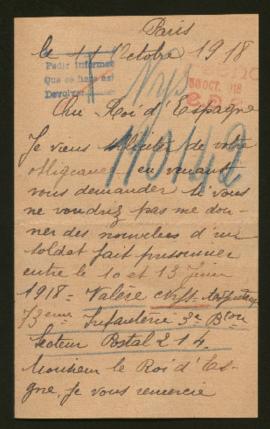 Paris
le 11 Octobre 1918
Pedir informes
Que se haga así
Devolver
30 OCT. 918
Cher Roi d'Espagne
110142
Je viens solliciter de votre
obligeance en venant
vous demander si vous
ne voudriez pas me don-
ner des nouvelles d'un
soldat fait prisonnier
entre le 10 et 13 Juin
1918 = Valère
73eme Infanterie 3e Bon
Secteur Postal 214.
Monsieur le Roi d'Es-
gne, je vous remercie